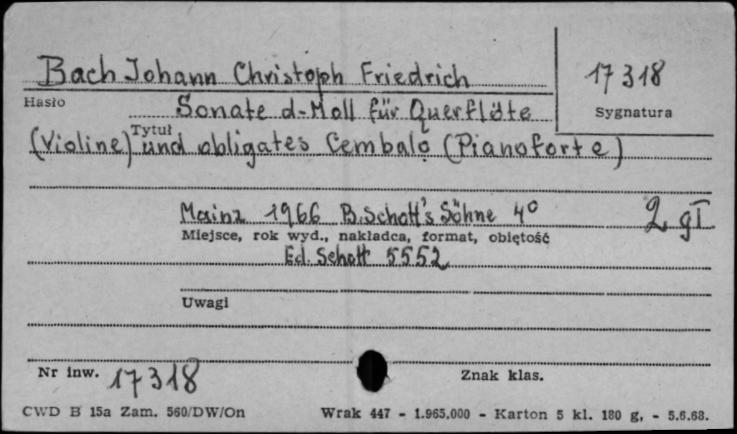 Bach Johann Christoph Friedrich
17 318
Hasło
Sygnatura
Sonate d-Moll für Querflöte
Tytuł
(Violine) und obligates Cembalo (Pianoforte)
Mainz 1966 B. Schott's Söhne 4°
2 gł
Miejsce, rok wyd., nakładca, format, objętość
Ed. Schott 5552
Uwagi
Nr inw. 17318
Znak klas.
CWD B 15a Zam. 560/DW/On Wrak 447 - 1.965.000 - Karton 5 kl. 180 g, - 5.6.68.